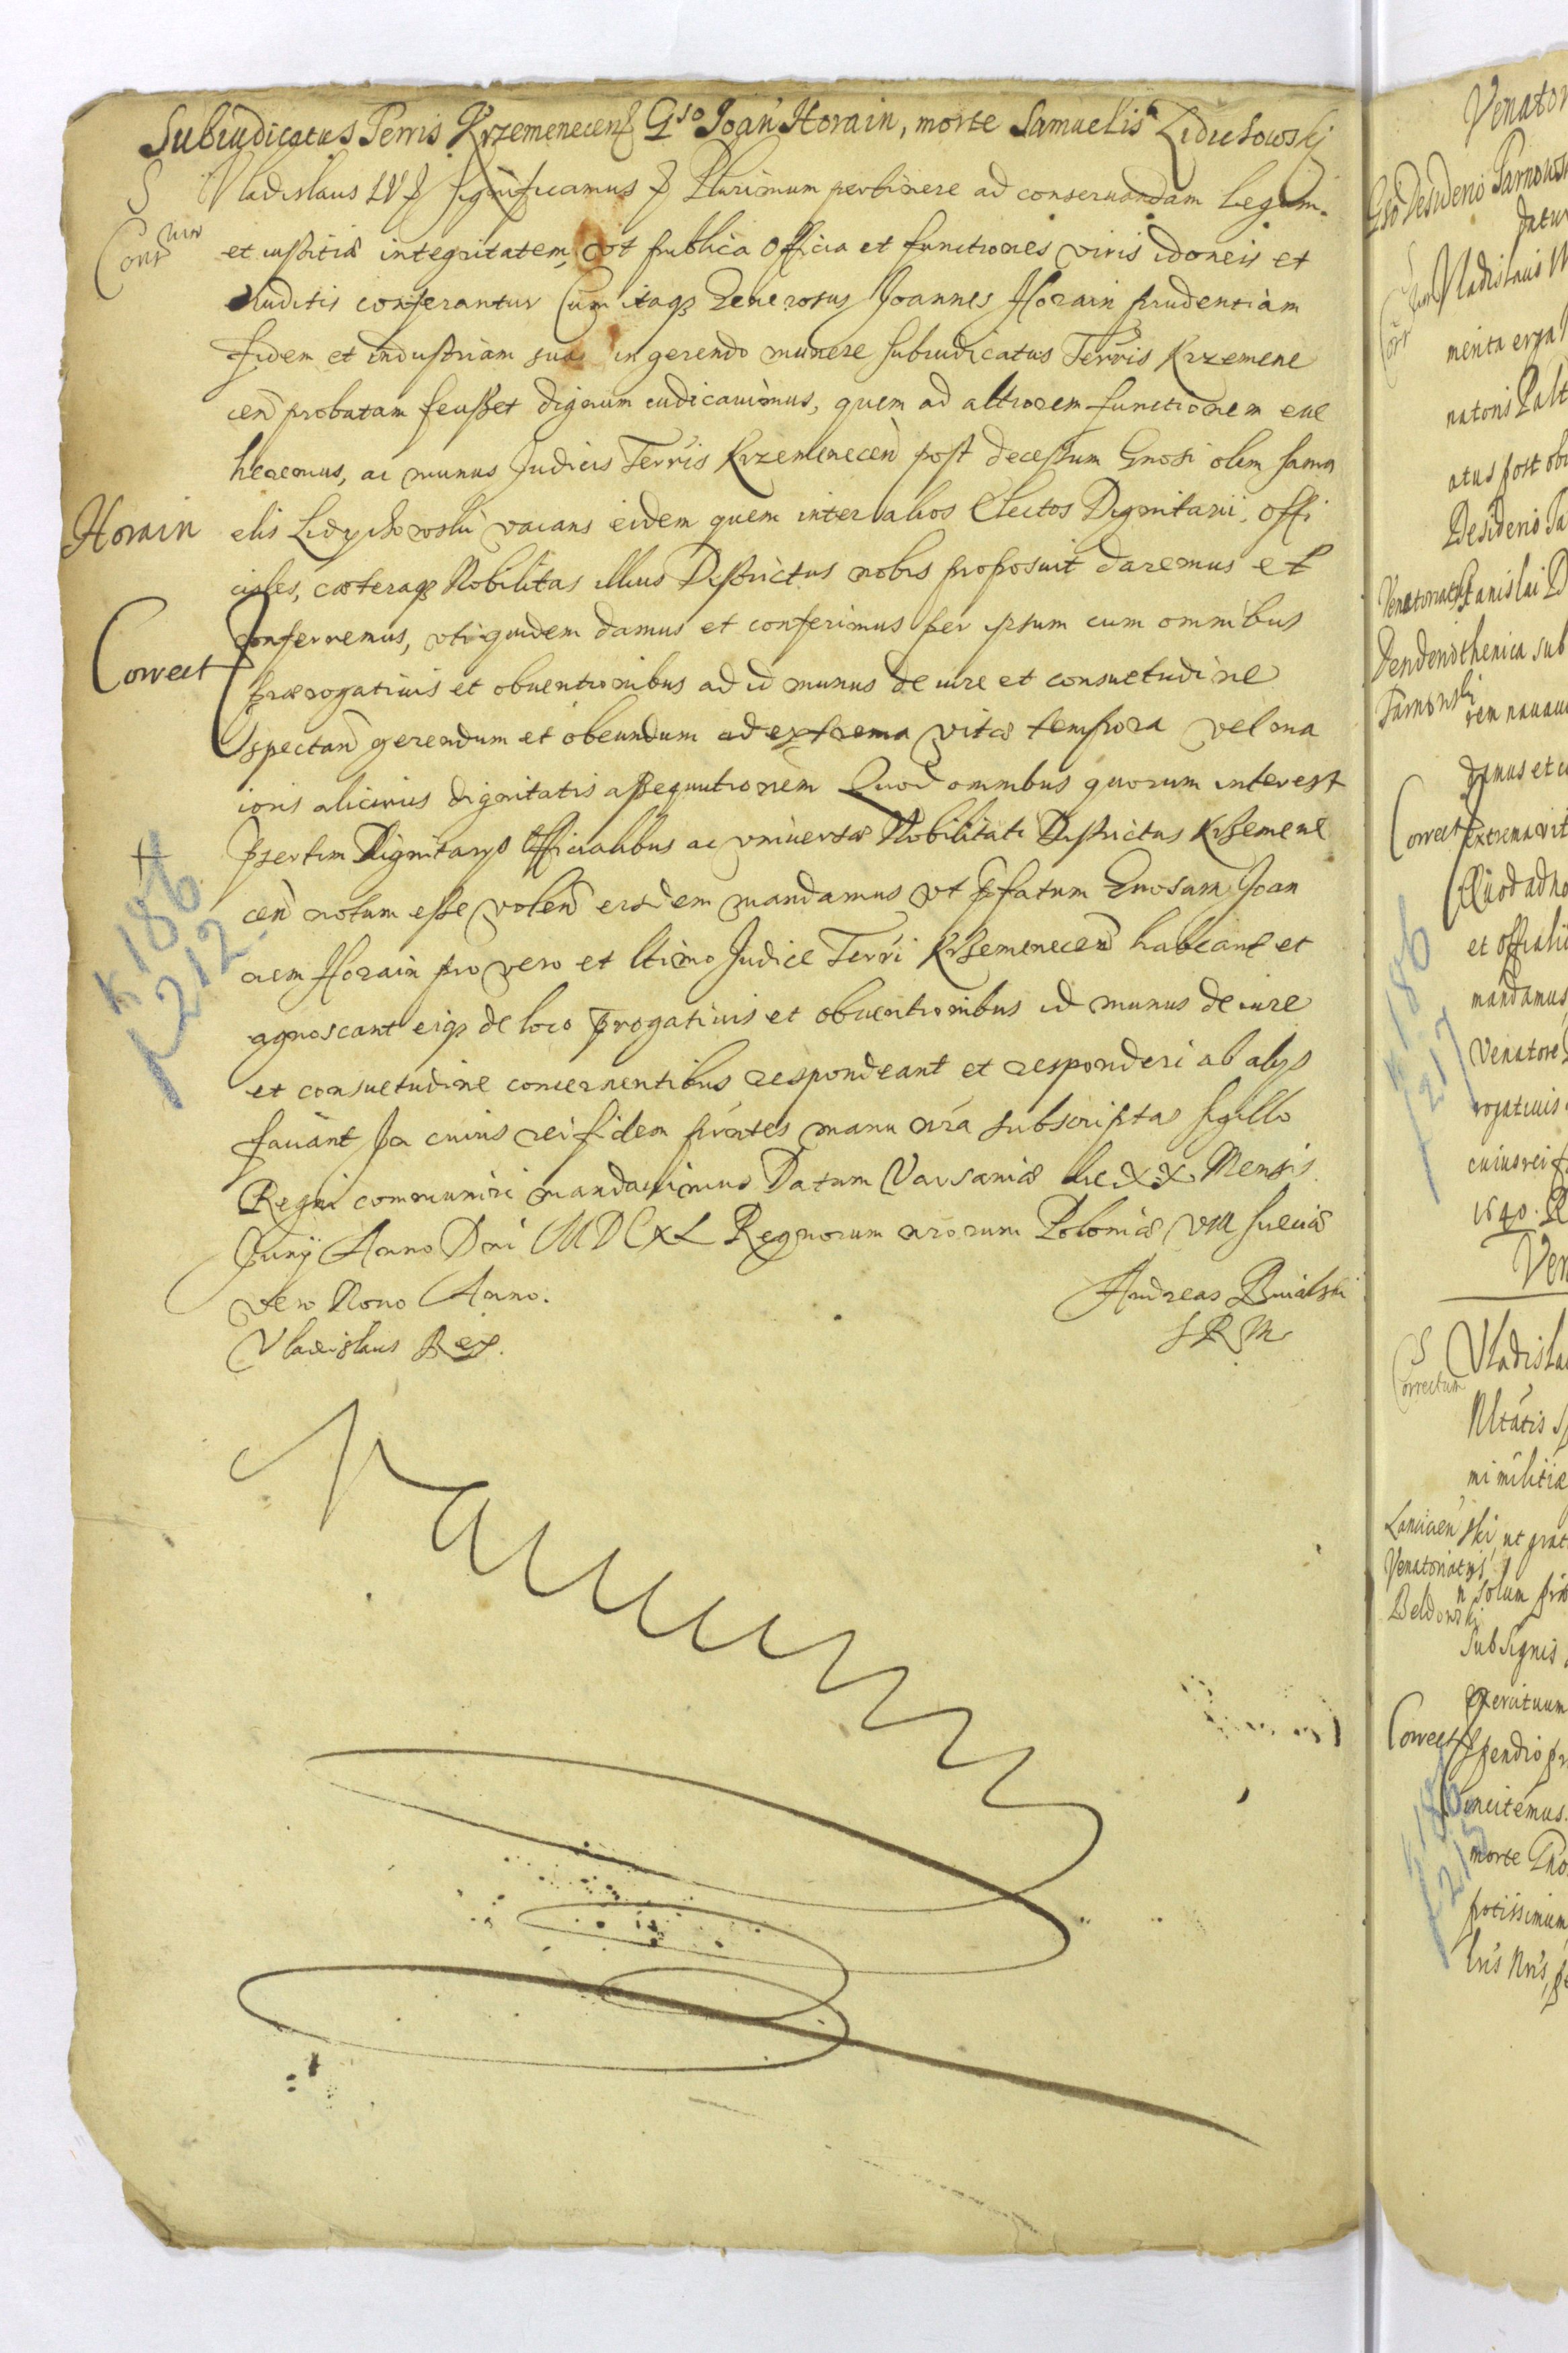 Subiudicatus Terris Krzemenecens Gso Joan Horain, morte Samuelis Leduchowski
S
Vladislaus IV significamus Plurimum pertinere ad conseruandam Legum
et iustitiæ integritatem, vt publica Officia et functiones viris idoneis et
eruditis conferantur Cum itaq3 Generosus Joannes Horain prudentiam
fidem et industriam suã in gerendo munere Subiudicatus Terris Krzemene
cen probatam fecisset dignum iudicauimus, quem ad altiorem functionem eue
heremus, ac munus Judicis Terris Krzemenecen post decessum Gnosi olim Samu
Horain
elis Ledychowski vacans eidem quem inter alios Electos Dignitarii, Offi
ciales, cæteraq3 Nobilitas illius Districtus nobis proposuit daremus et
conferremus, vti quidem damus et conferimus per ipsum cum omnibus
Correct
prærogatiuis et obuentionibus ad id munus de iure et consuetudine
spectan gerendum et obeundum ad extrema vitæ tempora vel ma
ioris alicuius dignitatis assequutionem Quod omnibus quorum interest
psertim Dignitarys Officialibus ac vniuersæ Nobilitati Districtus Krzemene
cen notum esse volen eisdem mandamus vt pfatum Gnosum Joan
K 186
f 212
nem Horain pro vero et ltimo Judice Terri Krzemenecen habeant et
agnoscant eiq3 de loco progatiuis et obuentionibus id munus de iure
et consuetudine concernentibus respondeant et responderi ab alys
faciant In cuius rei fidem pñtes manu nrã subscriptas sigillo
Regni communiri mandauimus Datum Varsauiæ die XX Mensis
Juny Anno Dni MDCXL Regnorum nrorum Poloniæ VIII Sueciæ
vero Nono Anno.
Andreas Buialski
Vladislaus Rex.
S R M
Venator
Gso Desiderio Tarnows
datur
Vladislaus
merita erga
natoris Palt
atus post obi
Desiderio Ta
Venatoriatus
Stanislai
Tarnowski
damus et
Correct
extrema vit
Quod ad no
et offiali
mandamus
K 186
f 217
Venatore
rogatiuis
cuius rei
1640.
Ven
S
Correctum
Vladisla
mi militiæ
Lancicien
ski, ut grat
Venatoriatus
n solum
Beldowski
Sub signis
exercituum
Correct
incitemus.
morte Gno
potissimum